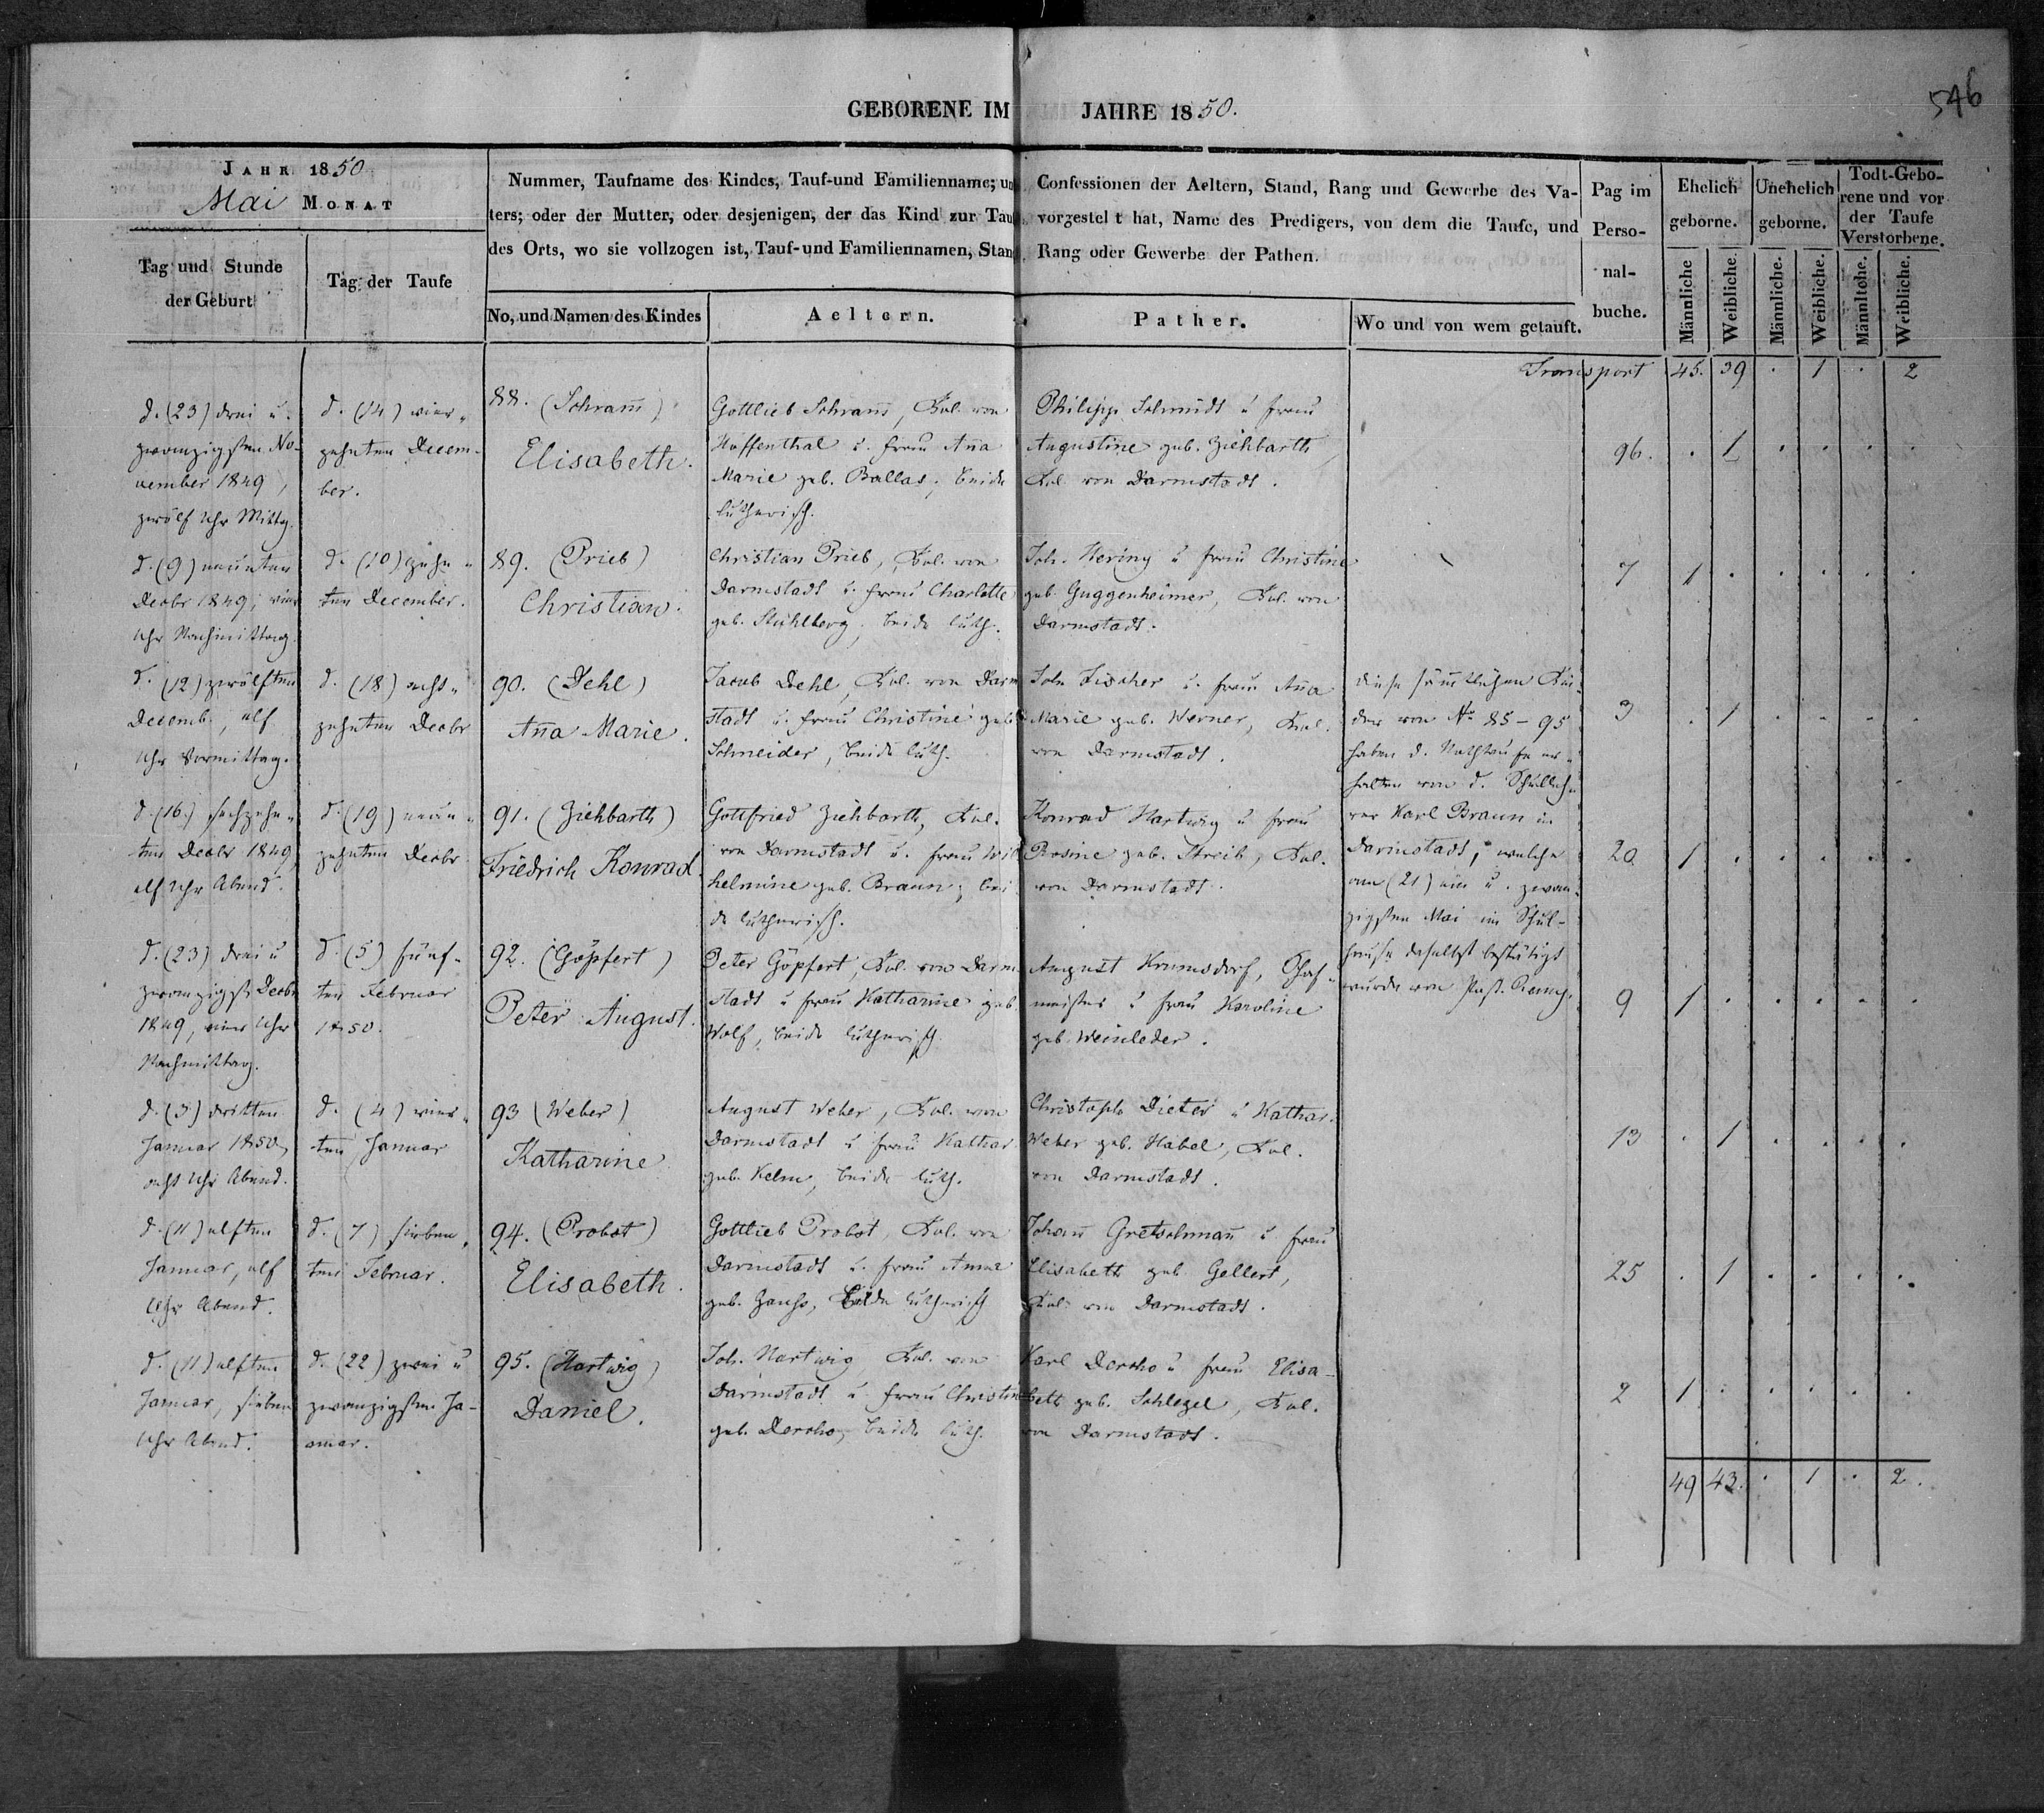 546
GEBORENE IM JAHRE 1850.
JAHR 1850
Mai MONAT
Tag und Stunde
der Geburt
Tag der Taufe
Nummer, Taufname des Kindes, Tauf-und Familienname; un
ters; oder der Mutter, oder desjenigen, der das Kind zur Tau
des Orts, wo sie vollzogen ist, Tauf-und Familiennamen, Stan
No, und Namen des Kindes
Aeltern.
Confessionen der Aeltern, Stand, Rang und Gewerbe des Va-
vorgestelt hat, Name des Predigers, von dem die Taufe, und
Rang oder Gewerbe der Pathen.
Pather.
Wo und von wem getauft.
Pag im
Perso-
nal-
buche.
Ehelich
geborne.
Unehelich
geborne.
Todt-Gebo-
rene und vor
der Taufe
Verstorbene.
Männliche
Weibliche.
Männliche.
Weibliche.
Männliche.
Weibliche.
Transport 45. 39 . 1 . 2
d. (23) drei u.
zwanzigsten No-
vember 1849,
zwölf Uhr Mittg.
d. (14) vier-
zehnten Decem-
ber.
88. (Schram̄)
Elisabeth.
Gottlieb Schram̄, Kol. von
Hoffenthal u. Frau An̄a
Marie geb. Ballas, beide
lutherisch.
Philipp Schmidt u Frau
Augustine geb. Ziehbarth
Kol. von Darmstadt.
96. . 1 . . . .
d. (9) neunten
Decbr 1849, vier
Uhr Nachmittag.
d. (10) zehn-
ten December.
89. (Prieb)
Christian.
Christian Prieb, Kol. von
Darmstadt u. Frau Charlotte
geb. Stuhlberg, beide luth.
Joh. Hering u Frau Christine
geb. Guggenheimer, Kol. von
Darmstadt.
7 1 . . . . .
d. (12) zwölften
Decemb., elf
Uhr Vormittag.
d. (18) acht-
zehnten Decbr
90. (Dehl)
An̄a Marie.
Jacob Dehl, Kol. von Darm
stadt u. Frau Christine geb
Schneider, beide luth.
Joh. Fischer u. Frau An̄a
Marie geb. Werner, Kol.
von Darmstadt.
diese säm̄tlichen Kin-
der von No 85-95
haben d. Nothtaufe er-
halten von d. Schulleh-
rer Karl Braun in
Darmstadt, welche
am (21) ein u. zwan-
zigsten Mai im Schul-
hause daselbst bestätigt
wurde von Past.
3 . 1 . . . .
d. (16.) sechzehn-
ten Decbr 1849
elf Uhr Abend.
d. (19) neun-
zehnten Decbr
91. (Ziehbarth)
Friedrich Konrad.
Gottfried Ziehbarth, Kol.
von Darmstadt u. Frau Wil
helmine geb. Braun, bei
de lutherisch.
Konrad Hartwig u Frau
Rosine geb. Streib, Kol.
von Darmstadt.
20. 1 . . . . .
d. (23) drei u
zwanzigst. Decbr
1849, vier Uhr
Nachmittag.
d. (5) fünf-
ten Februar
1850.
92. (Göpfert)
Peter August.
Peter Göpfert, Kol. von Darm
stadt u Frau Katharine geb
Wolf, beide lutherisch
August Krumsdorf, Schaf-
meister u Frau Karoline
geb Weinleder.
9 1 . . . . .
d. (3) dritten
Januar 1850,
acht Uhr Abend.
d. (4) vier-
ten Januar
93 (Weber)
Katharine
August Weber, Kol. von
Darmstadt u Frau Kathar
geb. Kelm, beide luth.
Christoph Dieter u Kathar.
Weber geb. Habel, Kol.
von Darmstadt.
13 . 1 . . . .
d. (11) elften
Januar, elf
Uhr Abend.
d. (7) sieben-
ten Februar.
94. (Probst)
Elisabeth.
Gottlieb Probst, Kol. von
Darmstadt u. Frau Anna
geb. beide lutherisch
Johan̄ Gretschman̄ u. Frau
Elisabeth geb. Gellert,
Kol. von Darmstadt.
25 . 1 . . . .
d. (11) elften
Januar, sieben
Uhr Abend.
d. (22) zwei u
zwanzigsten Ja-
anuar.
95. (Hartwig)
Daniel.
Joh. Hartwig Kol. von
Darmstadt u. Frau Christin
geb. Dercho, beide luth.
Karl Dercho u Frau Elisa-
beth geb. Schlegel, Kol.
von Darmstadt.
2 1 . . . . .
49 43. . 1 . 2.